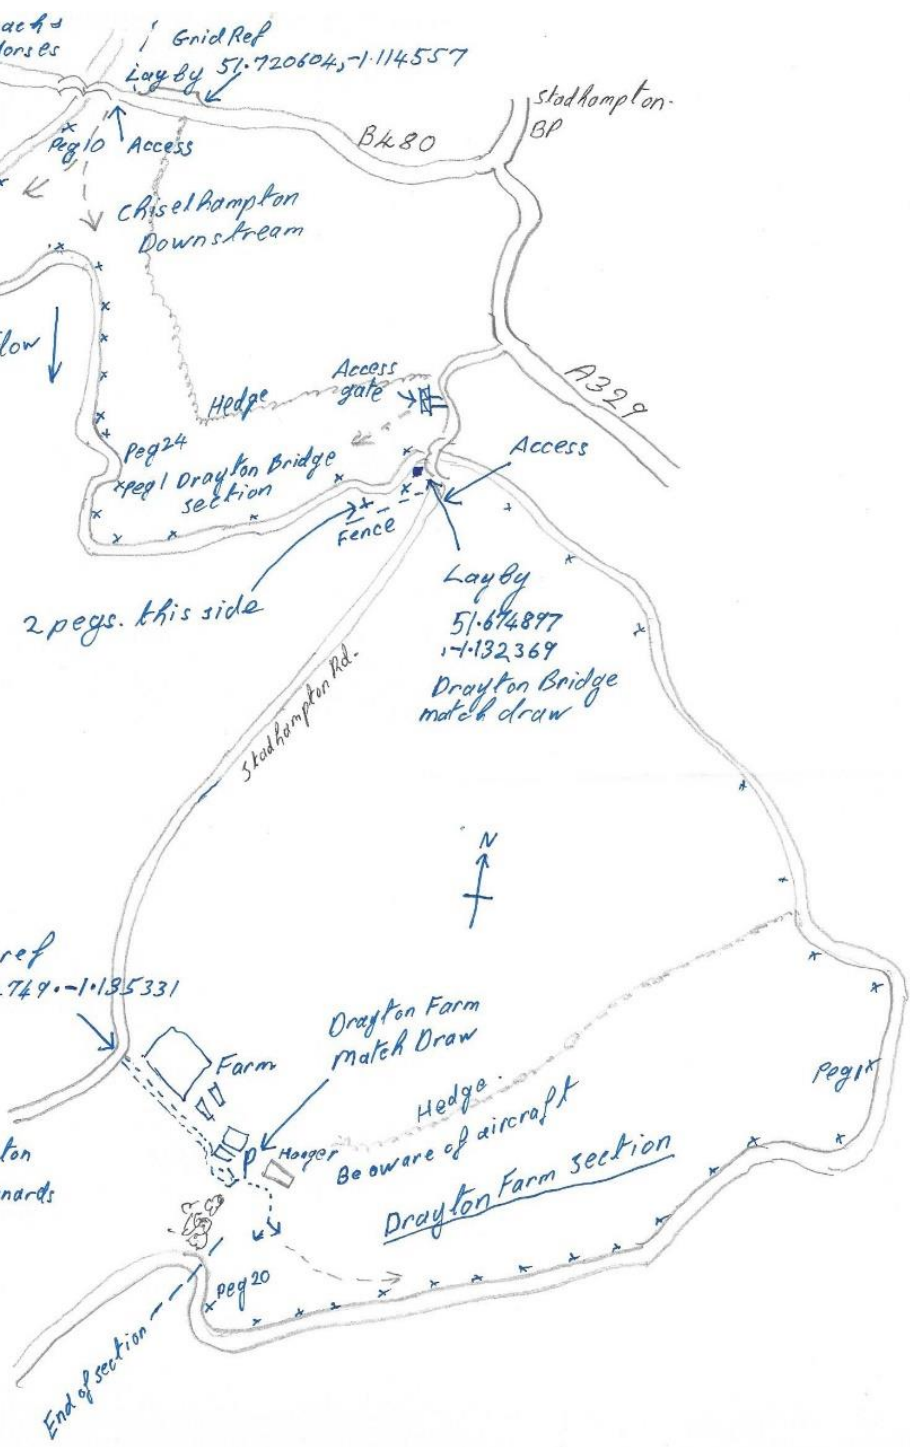 ach's
Horses
Grid Ref
Lay by 51.720604,-1.114557
Stadhampton.
BP
B480
Peg 10
Access
Chiselhampton
Downstream
flow
Access
gate
A329
Hedge
Peg 24
Peg 1 Drayton Bridge
section
Access
Fence
2 pegs. this side
Lay by
51.674897
,-1.132369
Drayton Bridge
match draw
Stadhampton Rd.
N
ref
.749.-1.135331
Drayton Farm
Match Draw
Farm
Hedge.
Peg 1
Be aware of aircraft
Hanger
P
ton
nards
Drayton Farm section
Peg 20
End of section